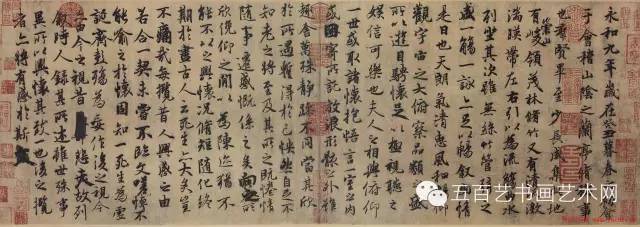 永和九年歲在癸丑暮春之初會
于會稽山陰之蘭亭脩稧事
也羣賢畢至少長咸集此地
有崇山峻領茂林脩竹又有清流激
湍暎帶左右引以為流觴曲水
列坐其次雖無絲竹管弦之
盛一觴一詠亦足以暢敘幽情
是日也天朗氣清惠風和暢仰
觀宇宙之大俯察品類之盛
所以遊目騁懷足以極視聽之
娛信可樂也夫人之相與俯仰
一世或取諸懷抱悟言一室之內
或因寄所託放浪形骸之外雖
趣舍萬殊靜躁不同當其欣
於所遇暫得於己快然自足不
知老之將至及其所之既惓情
隨事遷感慨係之矣向之所
欣俛仰之間以為陳迹猶不
能不以之興懷況脩短隨化終
期於盡古人云死生亦大矣豈
不痛哉每攬昔人興感之由
若合一契未嘗不臨文嗟悼不
能喻之於懷固知一死生為虛
誕齊彭殤為妄作後之視今
亦由今之視昔悲夫故列
敘時人錄其所述雖世殊事
異所以興懷其致一也後之攬
者亦將有感於斯文
五百艺书画艺术网